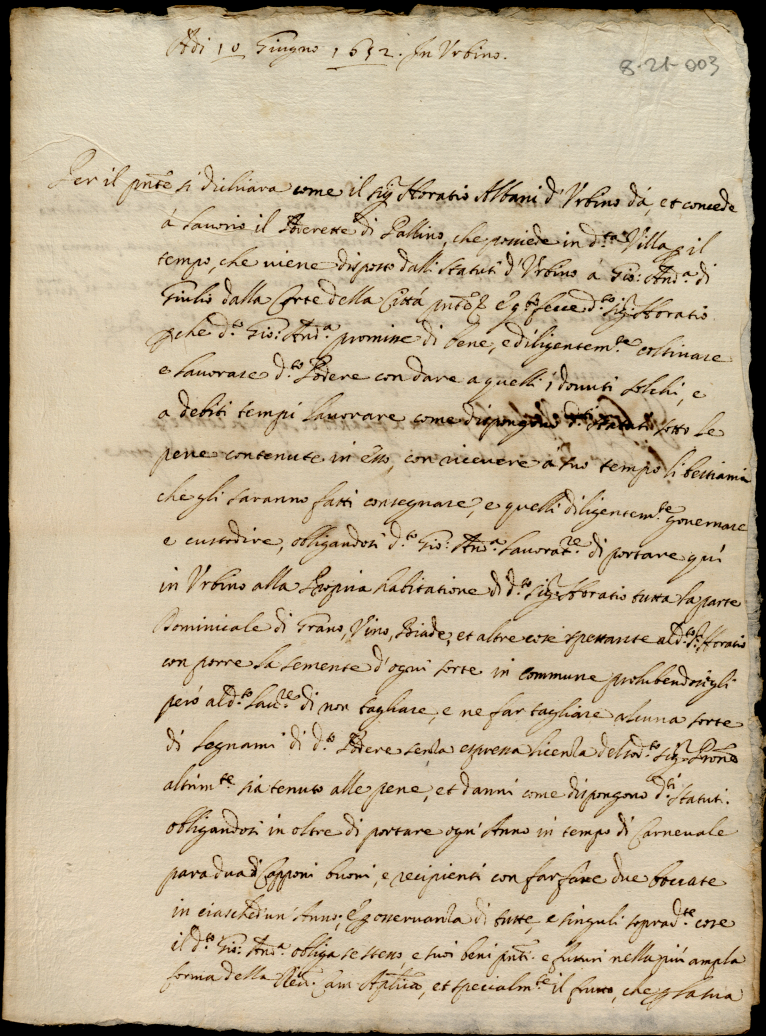 Adi 10 Giugno 1652. In Urbino.
8-21-003
Per il pnte si dichiara come il sigr Horatio Albani d'Urbino dà, et concede
à lavorio il Poderetto di Pallino, che possiede in d.ta Villa p il
tempo, che viene disposto dalli statuti d'Urbino à Gio: And.a di
Giulio dalla Corte della Città pnte è q.to fece d.to sig.r Horatio
pche d.to Gio: And.a promisse di bene, e diligentem.te coltivare
e lavorare d.to Podere con dare a quelli i dovuti solchi, e
a debiti tempi lavorare come dispongono d.ti statuti sotto le
pene contenute in essi, con ricevere à suo tempo li bestiami
che gli saranno fatti consegnare, e quelli diligentem.te governare
e custodire, obligandosi d.to Gio: And.a Lavorat.re di portare quì
in Urbino alla Propria habitatione di d.to sig.r Horatio tutta la parte
Dominicale di Grano, Vino, Biade, et altre cose spettante al d.to S.r Horatio
con porre la semente d'ogni sorte in commune prohibendosigli
però al d.to Lav.re di non tagliare, e ne far tagliare alcuna sorte
di legnami di d.to Podere senza espressa licenza del sod.to sig.r Prone
altrim.te sia tenuto alle pene, et danni come dispongono d.ti statuti.
obligandosi in oltre di portare ogn'Anno in tempo di Carnevale
para dua di Capponi buoni, e recipienti con far fare due boccate
in ciaschedun'Anno; è p osservanza di tutte, e singuli soprad.te cose
il d.to Gio: And.a obliga se stesso, e suoi beni pnti e futuri nella più ampla
forma della Rev. Cam Aplica, et specialm.te il frutto, che p la sua